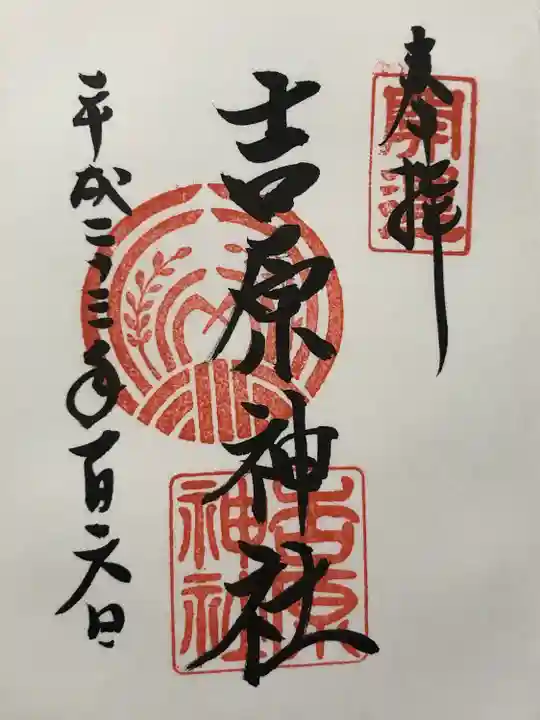 奉拝
開運
吉原神社
吉原
神社
平成二三年一月二六日